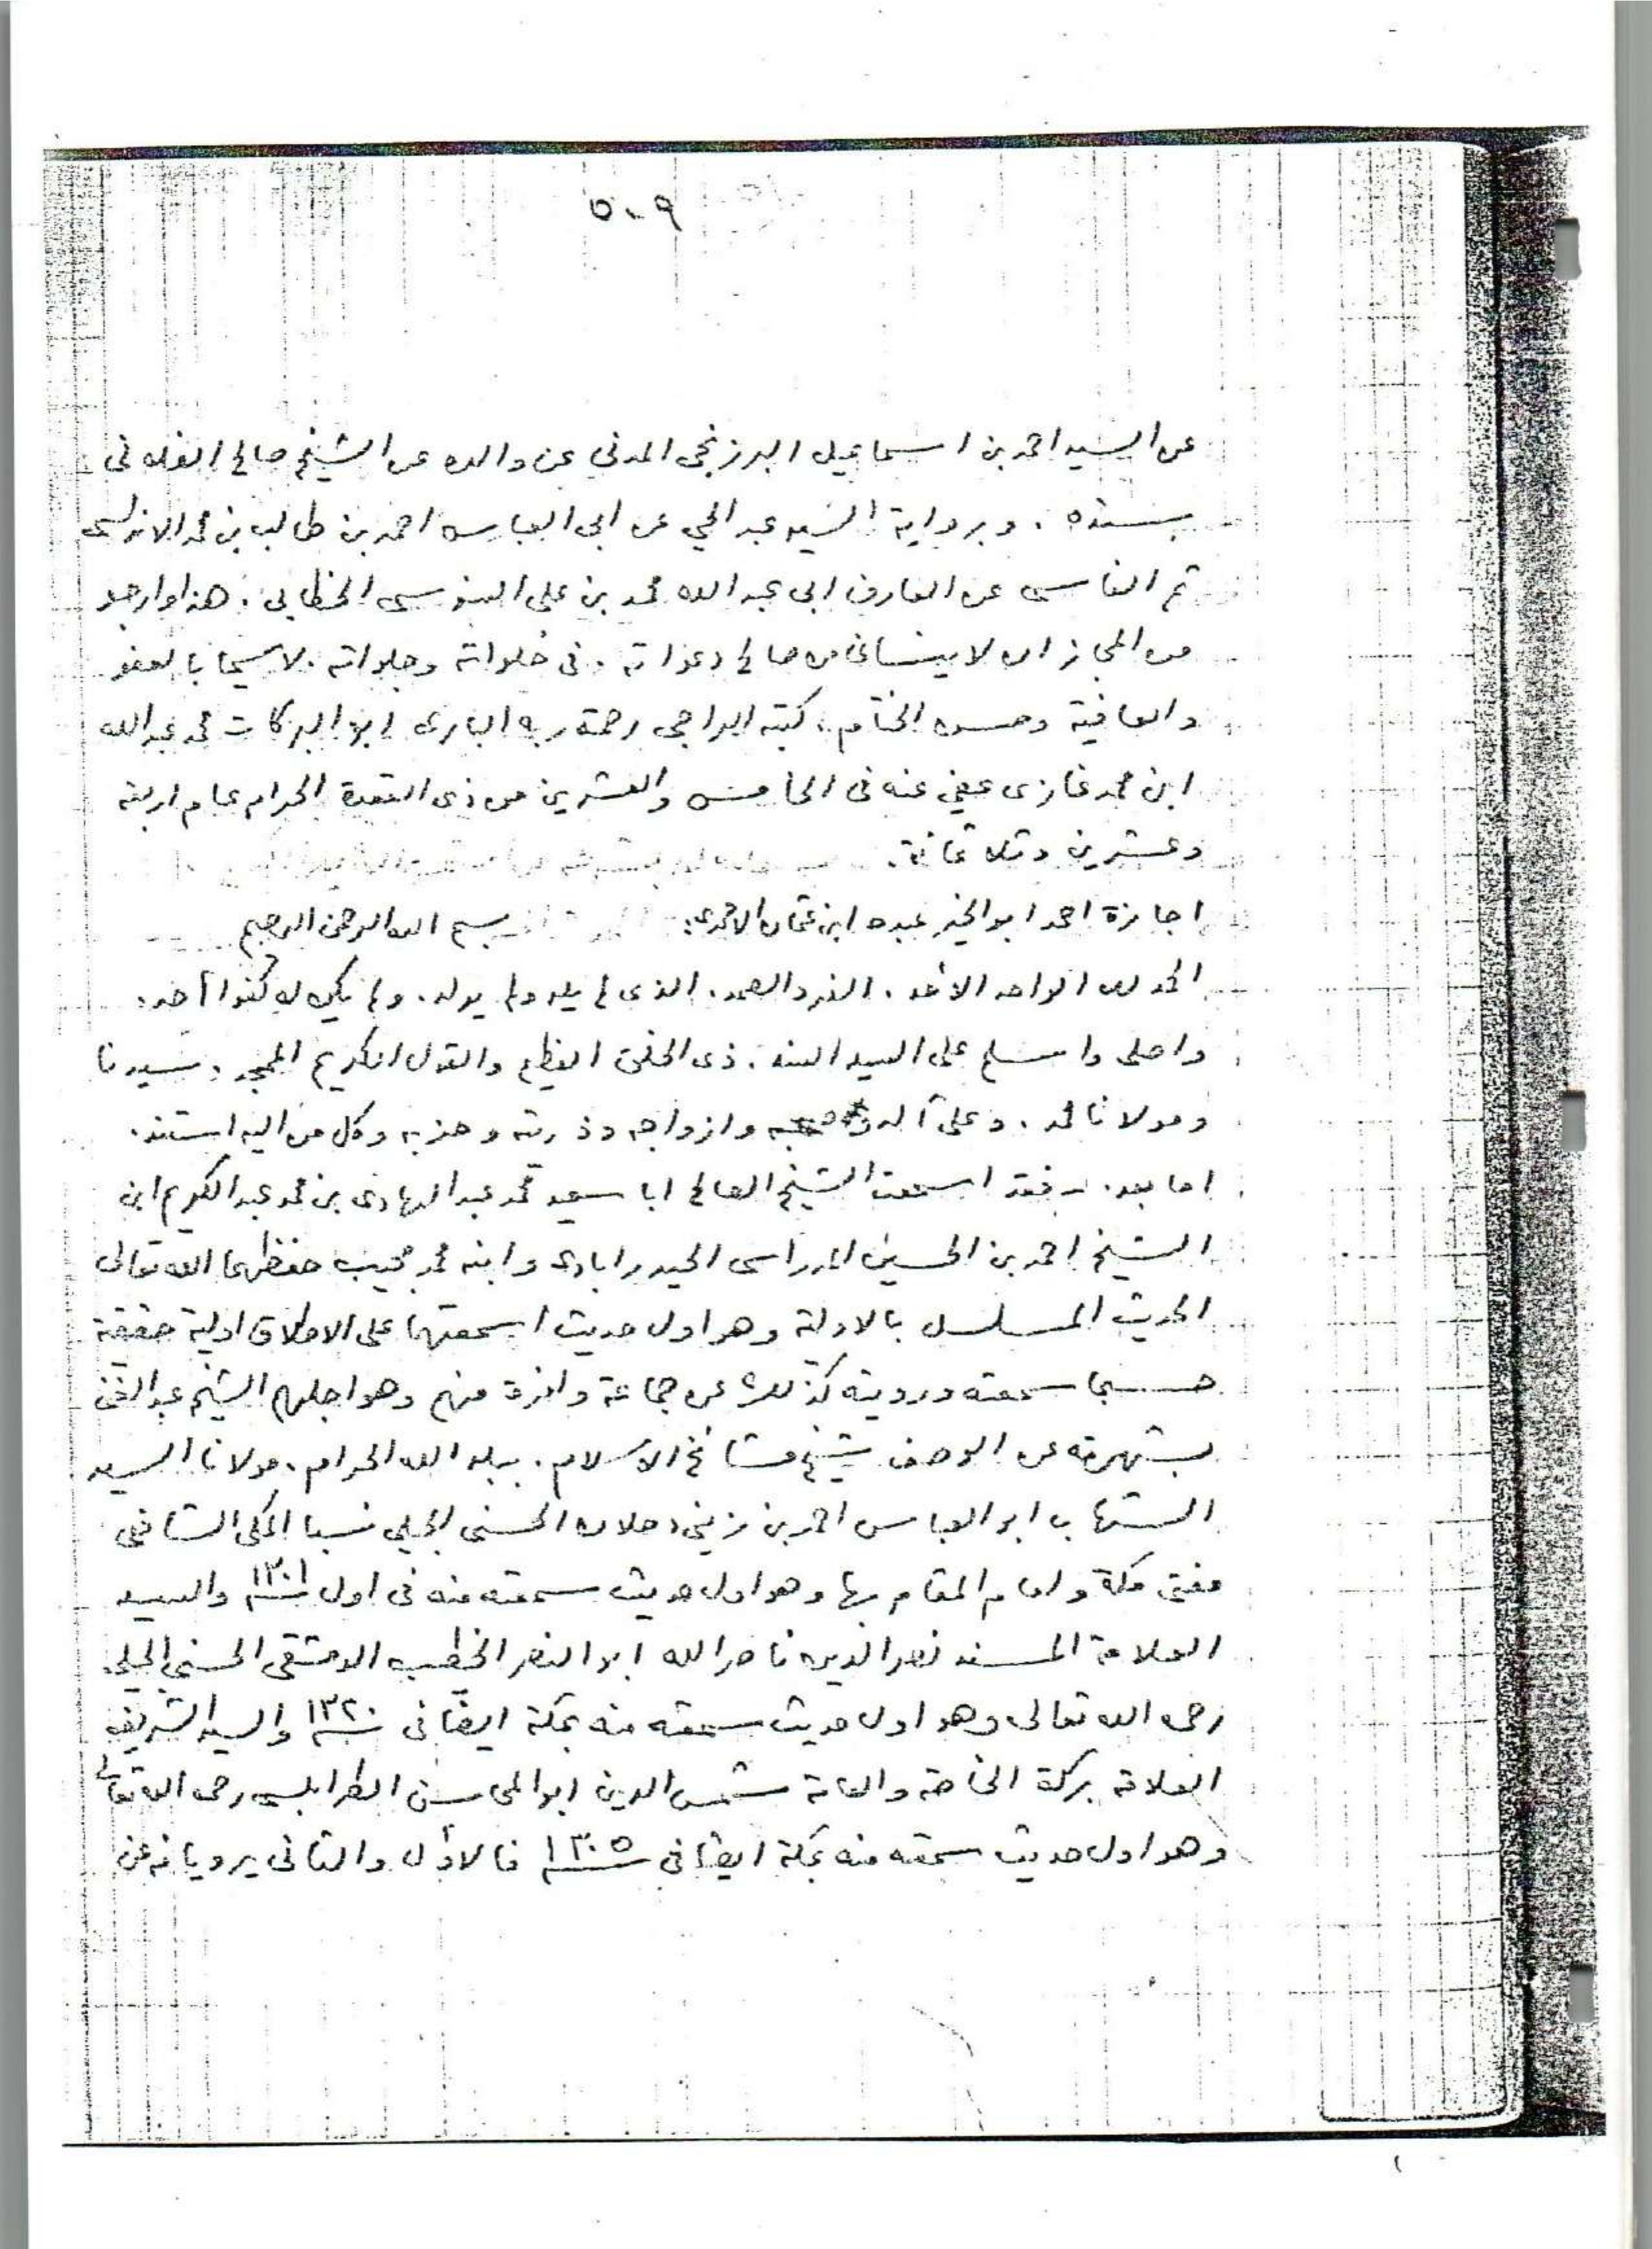 ٥٠٩
عن السيد احمد بن اسماعيل البرزنجى المدنى عن والده عن الشيخ صالح الفلانى
بسنده . وبرواية السيد عبد الحي عن ابى العباس احمد بن طالب بن محمد الاندلسى
ثم الفاسى عن العارف ابى عبد الله محمد بن على السنوسى الخطابى . هذا وارجو
من المجاز ان لا ينسانى من صالح دعواته . فى خلواته وجلواته . لاسيما بالعفو
والعافية وحسن الختام . كتبه الراجى رحمة ربه البارى ابو البركات محمد عبد الله
ابن محمد غازى عفى عنه فى الخامس والعشرين من ذى القعدة الحرام عام اربعة
وعشرين وثلاثمائة .
اجازة احمد ابو الخير عبده ابن عثمان الاحمدى: بسم الله الرحمن الرحيم
الحمد لله الواحد الاحد . الفرد الصمد . الذى لم يلد ولم يولد . ولم يكن له كفوا أحد .
واصلى واسلم على السيد السند . ذى الخلق العظيم والقول الكريم الممجد . سيدنا
ومولانا محمد . وعلى آله وصحبه وازواجه وذريته وحزبه وكل من اليه استند .
اما بعد . فقد اسمعت الشيخ الصالح ابا سعيد محمد عبد الهادى بن محمد عبد الكريم ابن
الشيخ احمد بن الحسين المدراسى الحيدرابادى وابنه محمد مجيب حفظهما الله تعالى
الحديث المسلسل بالاولة وهو اول حديث اسمعتهما على الاطلاق اولية حقيقة
حسبما سمعته ورويته كذلك عن جماعة وافرة منهم وهو اجلهم الشيخ عبد الغنى
بشهرته عن الوصف شيخ مشائخ الاسلام . ببلد الله الحرام . مولانا السيد
الشهاب ابو العباس احمد بن زينى دحلان الحسنى الجيلى نسبا المكى الشافعى
مفتى مكة وامام المقام بها وهو اول حديث سمعته منه فى اول ١٣٠١ والسيد
العلامة المسند نصر الدين ناصر الله ابو النصر الخطيب الدمشقى الحسنى الجيلى
رحمه الله تعالى وهو اول حديث سمعته منه بمكة ايضا فى ١٣٢٠ والسيد الشريف
العلامة بركة الخاصة والعامة شمس الدين ابو المحاسن الطرابلسى رحمه الله تعالى
وهو اول حديث سمعته منه بمكة ايضا فى ١٣٠٥ فالاول والثانى يرويانه عن